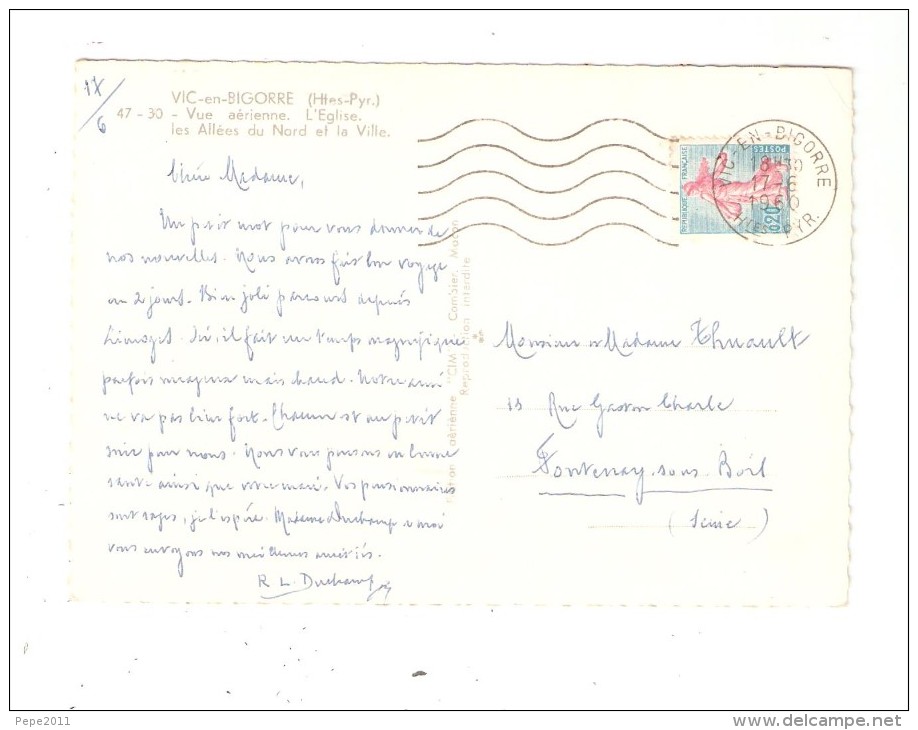 17/6
VIC-en-BIGORRE (Htes-Pyr.)
47 - 30 - Vue aérienne. L'Eglise.
les Allées du Nord et la Ville.
Chère Madame,
Un petit mot pour vous donner de
nos nouvelles. Nous avons fait bon voyage
en 2 jours. Bien joli parcours depuis
Limoges. Ici, il fait un temps magnifique
parfois nuageux mais chaud. Notre ami
ne va pas bien fort. Chacun est au petit
soin pour nous. Nous vous pensons en bonne
santé ainsi que votre mari. Vos pensionnaires
sont sages, je l'espère. Madame Duchamp et moi
vous envoyons nos meilleures amitiés.
R L Duchamp
aérienne "CIM" Combier, Macon
Reproduction interdite
REPUBLIQUE FRANÇAISE
POSTES
0,20
VIC-EN-BIGORRE
18H30
17-6
1960
Htes PYR.
Monsieur et Madame Thuault
13 Rue Gaston Charle
Fontenay-sous-Bois
(Seine)
Pepe2011
www.delcampe.net